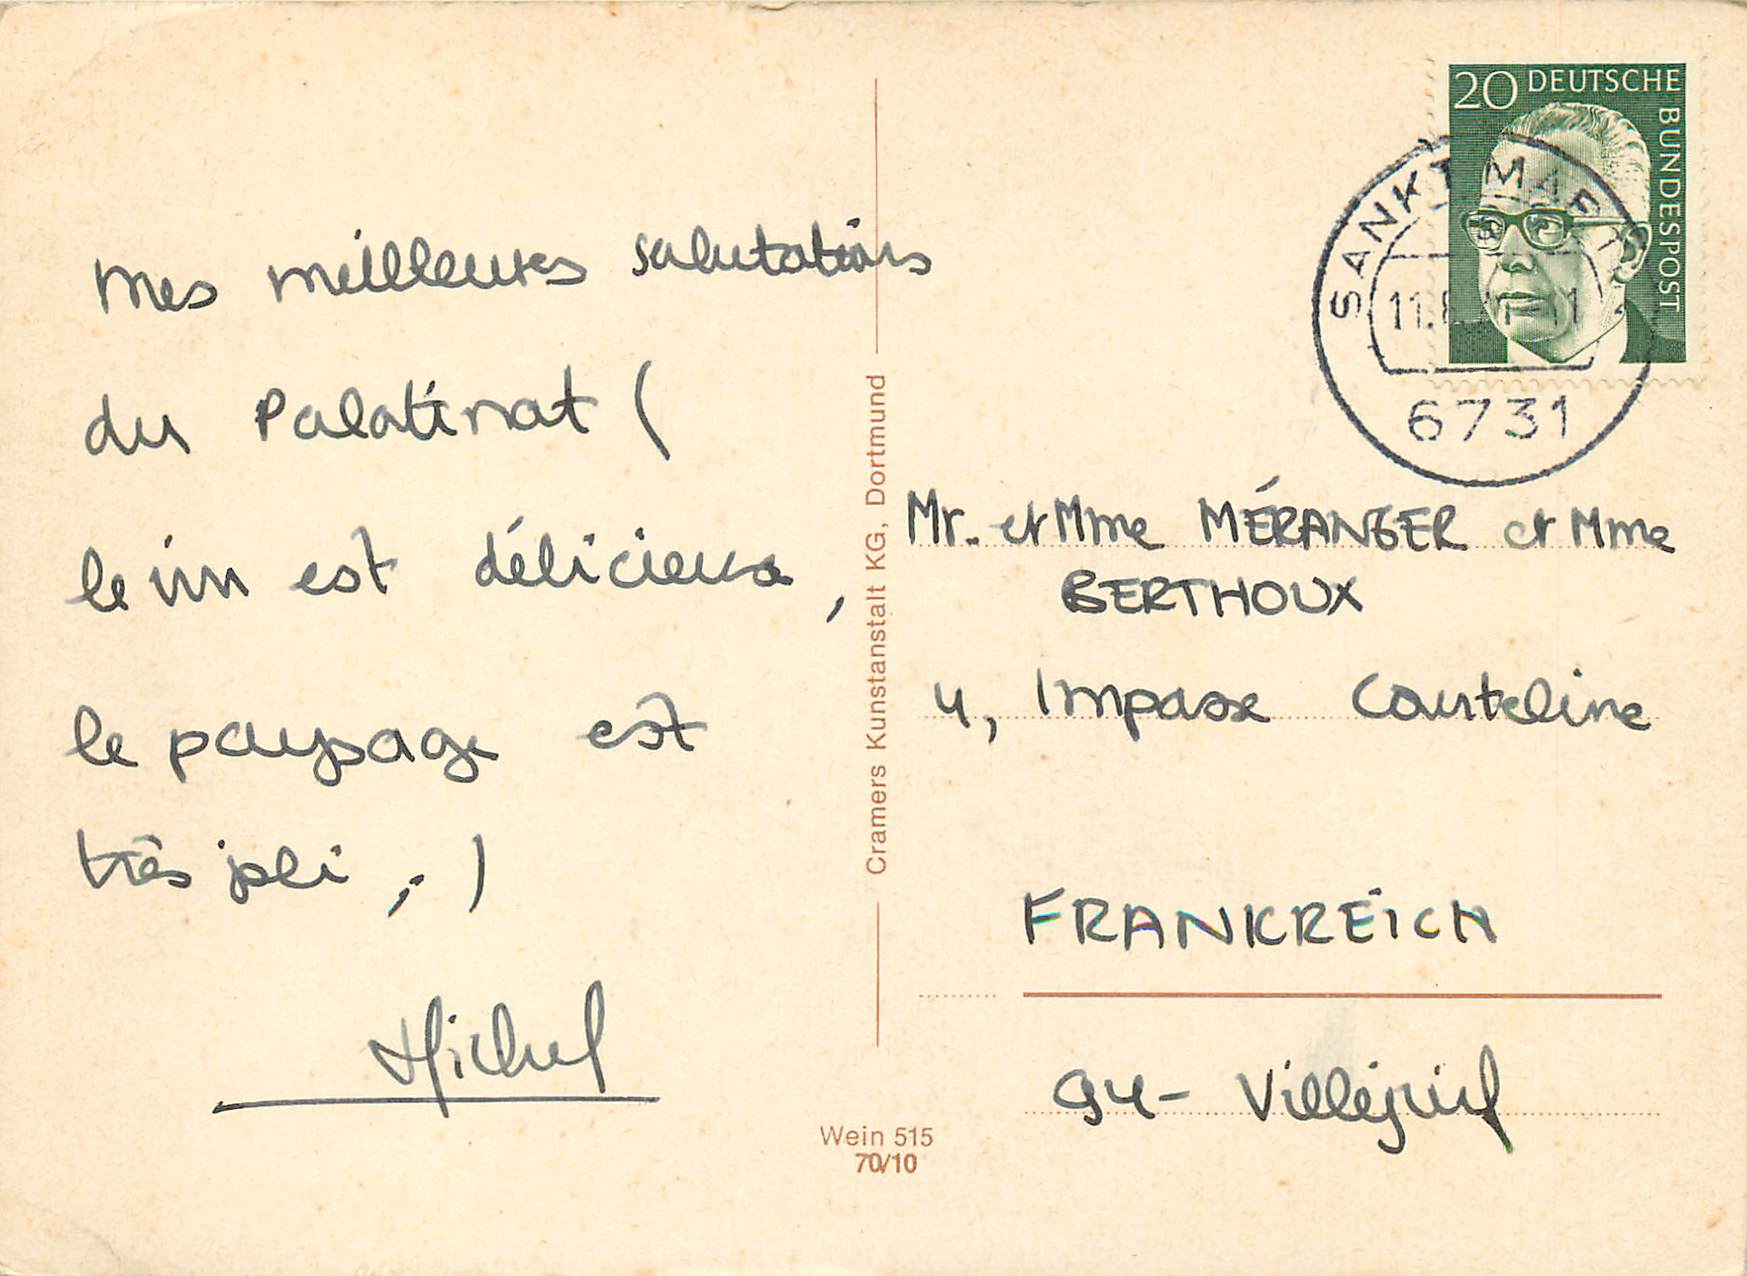 Mes meilleures salutations
du Palatinat (
le vin est délicieux,
le paysage est
très joli, .)
Michel
Cramers Kunstanstalt KG, Dortmund
Wein 515
70/10
20 DEUTSCHE
BUNDESPOST
SANKT MARTIN
6731
Mr. et Mme MÉRANGER et Mme
BERTHOUX
4, Impasse Courteline
FRANKREICH
94- Villejuif